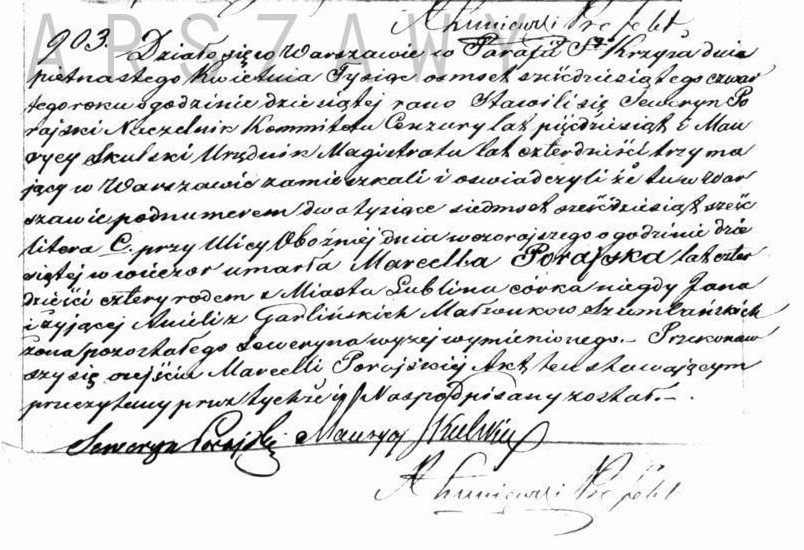 A Kuniewski Prefekt
ARSZAWY
903. Działo się w Warszawie w Parafii Sgo Krzyża dnia
piętnastego Kwietnia Tysiąc osmset sześćdziesiątego czwar
tego roku o godzinie dziesiątej rano Stawili się Seweryn Po
rajski Naczelnik Kommitetu Cenzury lat pięćdziesiąt i Mau
rycy Skulski Urzędnik Magistratu lat czterdzieści trzy ma
jący w Warszawie zamieszkali i oswiadczyli że tu w War
szawie pod numerem dwa tysiące siedmset sześćdziesiąt sześć
litera C. przy Ulicy Oboźniej dnia wczorajszego o godzinie dzie
siątej w wieczor umarła Marcella Porajska lat czter
dzieści cztery rodem z Miasta Lublina córka niegdy Jana
i żyjącej Anieli z Garlińskich Małżonkow Szumlańskich
żona pozostałego Seweryna wyzej wymienionego. – Przekonaw
szy się o zejściu Marcelli Porajskiej Akt ten stawającym
przeczytany przez tychże i Nas podpisany został. –
Seweryn Porajski Maurycy Skulski
A Kuniewski Prefekt